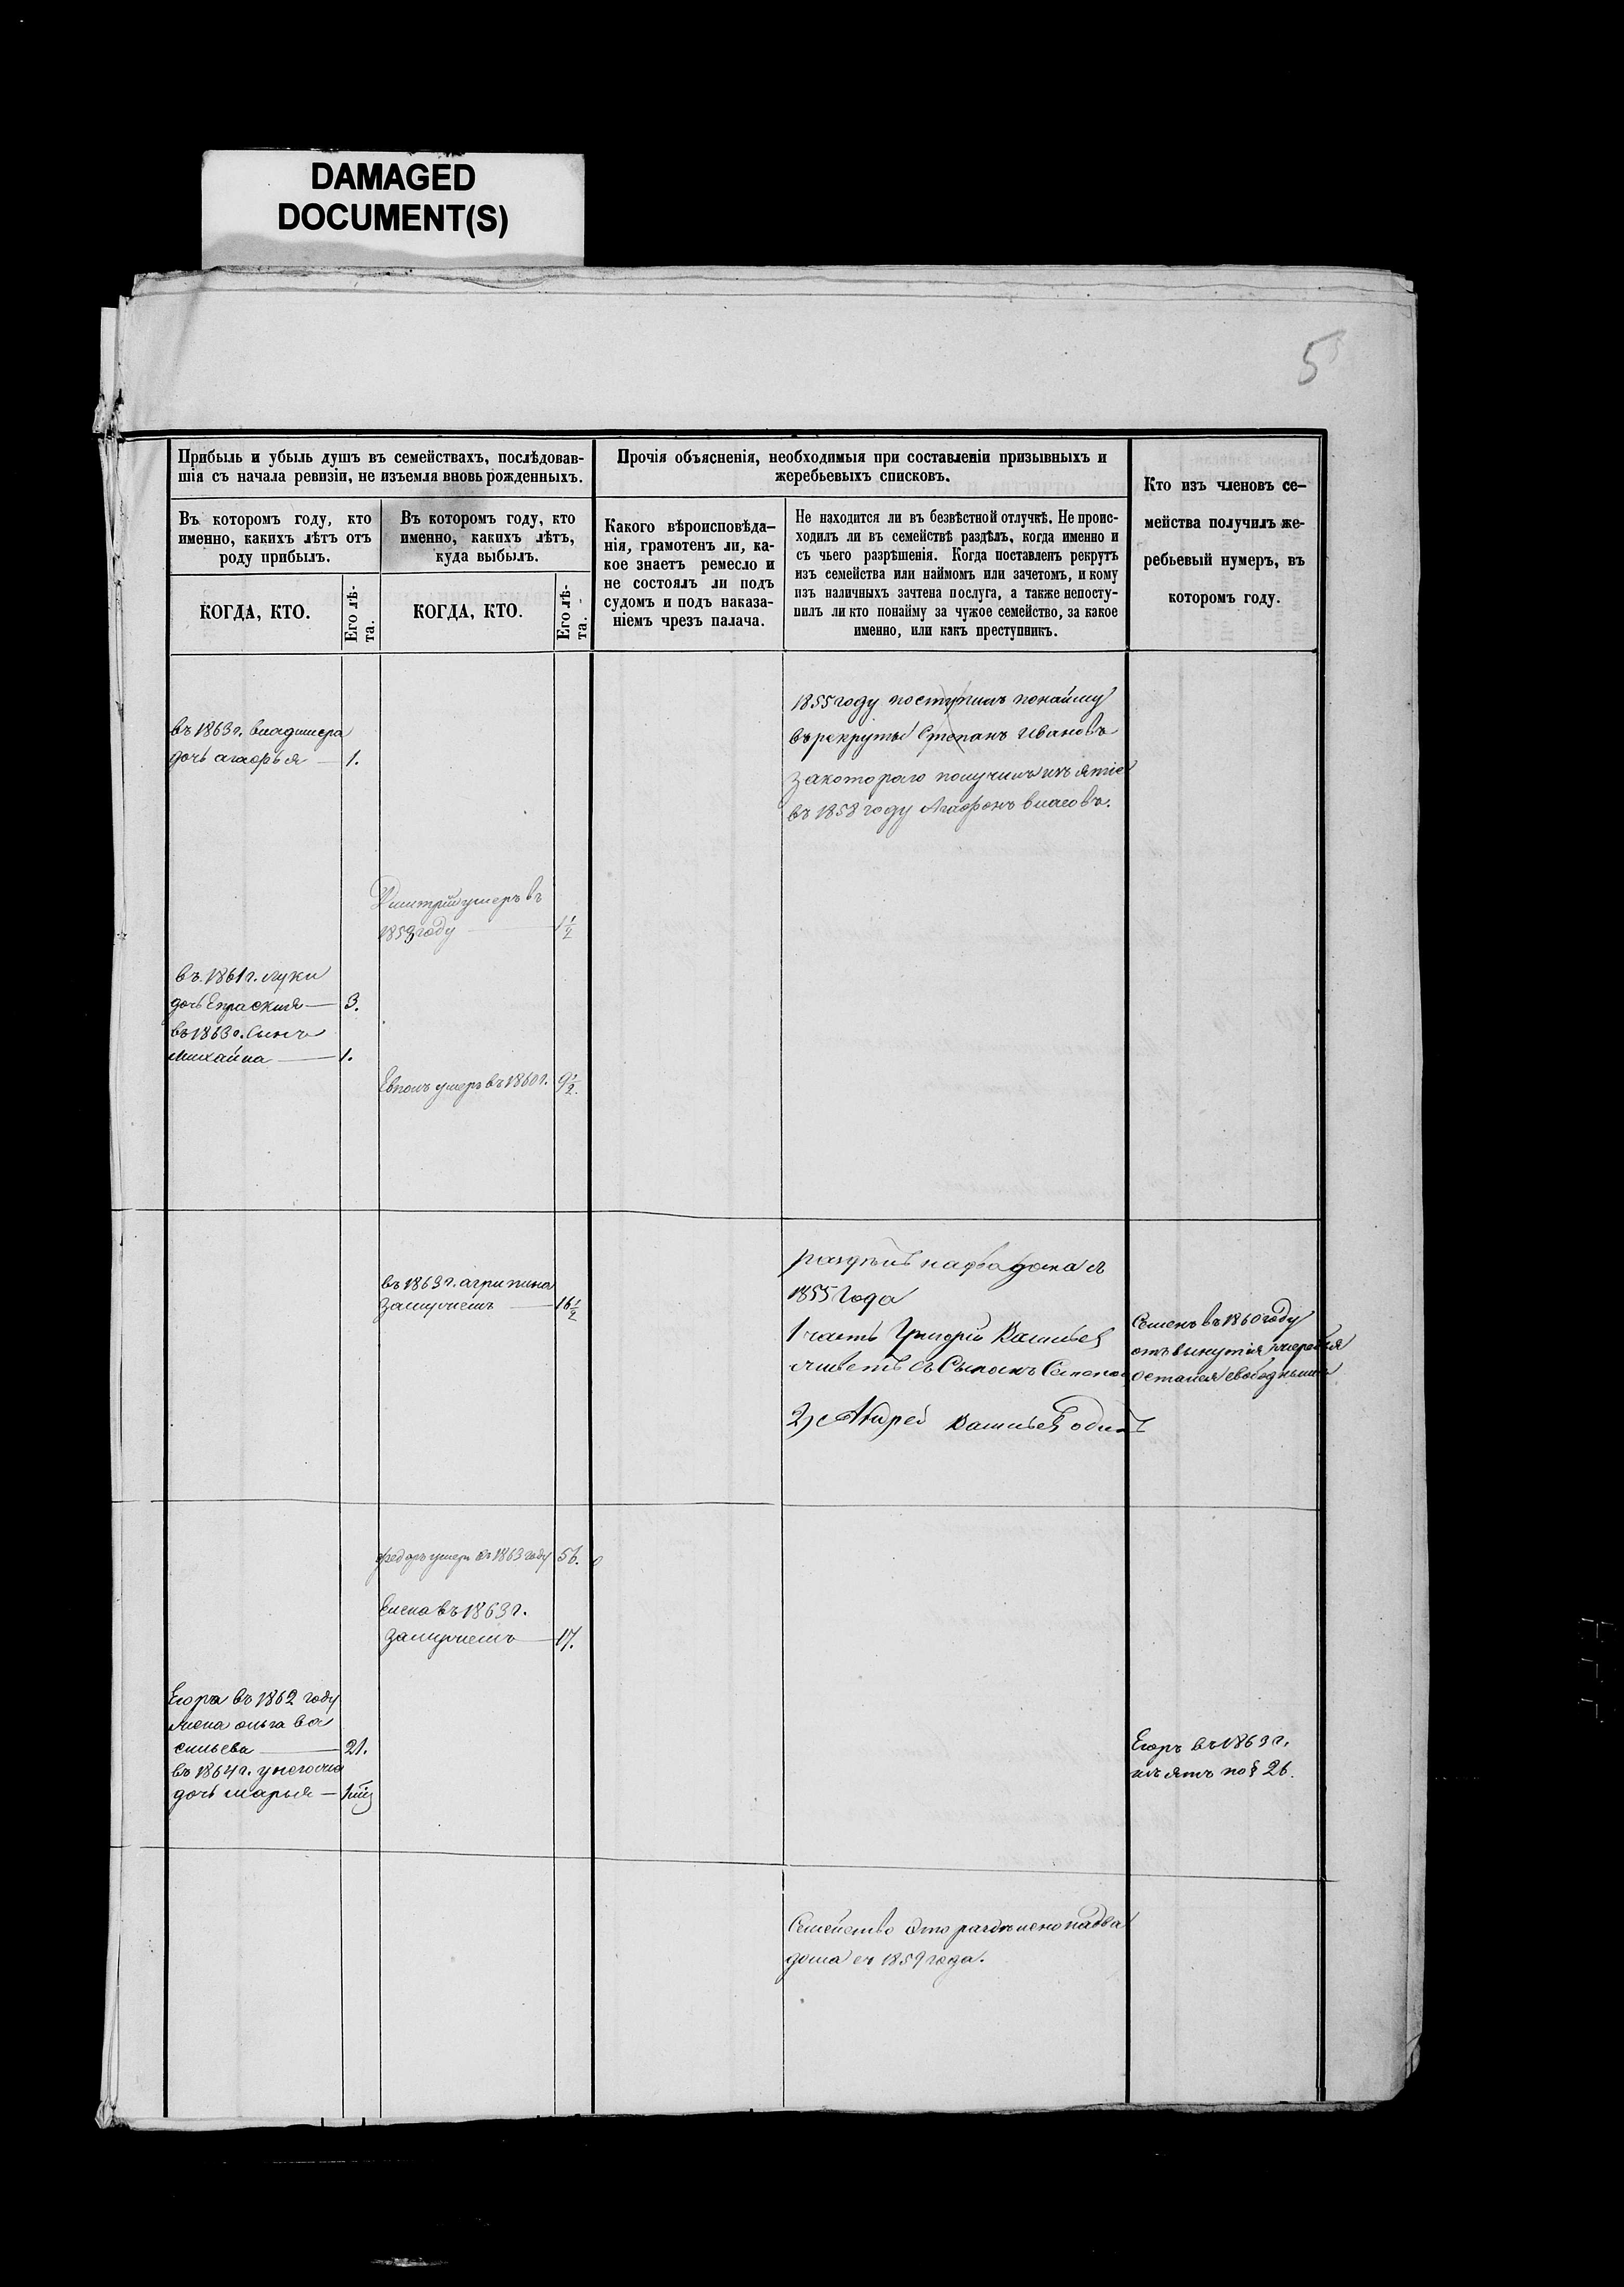 DAMAGED
DOCUMENT(S)
5
Прибыль и убыль душъ въ семействахъ, послѣдовав-
шія съ начала ревизіи, не изъемля вновь рожденныхъ.
Въ которомъ году, кто
именно, какихъ лѣтъ отъ
роду прибылъ.
КОГДА, КТО.
Его лѣ-
та.
Въ которомъ году, кто
именно, какихъ лѣтъ,
куда выбылъ.
КОГДА, КТО.
Его лѣ-
та.
Прочія объясненія, необходимыя при составленіи призывныхъ и
жеребьевыхъ списковъ.
Какого вѣроисповѣда-
нія, грамотенъ ли, ка-
кое знаетъ ремесло и
не состоялъ ли подъ
судомъ и подъ наказа-
ніемъ чрезъ палача.
Не находится ли въ безвѣстной отлучкѣ. Не проис-
ходилъ ли въ семействѣ раздѣлъ, когда именно и
съ чьего разрѣшенія. Когда поставленъ рекрутъ
изъ семейства или наймомъ или зачетомъ, и кому
изъ наличныхъ зачтена послуга, а также непосту-
пилъ ли кто понайму за чужое семейство, за какое
именно, или какъ преступникъ.
Кто изъ членовъ се-
мейства получилъ же-
ребьевый нумеръ, въ
которомъ году.
1855 году поступилъ понайму
въ рекруты Степанъ Ивановъ
закотораго получилъ изъятіе
въ 1858 году Агафонъ Власовъ.
въ 1863 г. владимера
дочь агафья — 1.
Дмитрій умеръ въ
1859 году — 1 1/2
въ 1861 г. луки
дочь Епраския — 3.
въ 1863 г. сынъ
михайла — 1.
Евполъ умеръ въ 1860 г. 9 1/2.
въ 1863 г. агрипина
замужемъ — 16 1/2
раздѣлъ на два дома съ
1855 года
1 часть Григорій Васильев
живетъ съ Сыномъ Семеном
2) Андрей Васильев одинъ
Семенъ въ 1860 году
отъ вынутия жеребия
остался свободнымъ
федоръ умеръ въ 1863 году 56.
Елена въ 1863 г.
замужемъ — 17.
Егора въ 1862 году
жена ольга ва
сильева — 21.
въ 1864 г. у него
дочь марья —
Егоръ въ 1863 г.
изъятъ по § 26.
Семейство это раздѣлено на два
дома съ 1859 года.